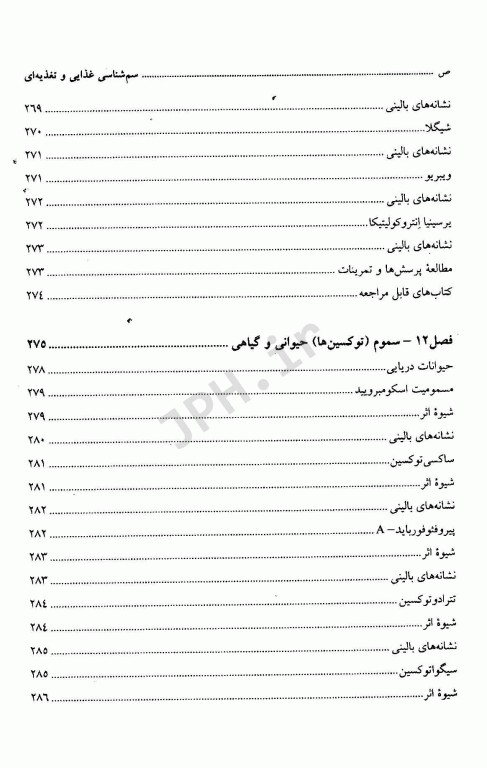 ص ........ سم‌شناسی غذایی و تغذیه‌ای
نشانه‌های بالینی ........ ۲۶۹
شیگلا ........ ۲۷۰
نشانه‌های بالینی ........ ۲۷۱
ویبریو ........ ۲۷۱
نشانه‌های بالینی ........ ۲۷۲
یرسینیا إنتروکولیتیکا ........ ۲۷۲
نشانه‌های بالینی ........ ۲۷۳
مطالعهٔ پرسش‌ها و تمرینات ........ ۲۷۳
کتاب‌های قابل مراجعه ........ ۲۷٤
فصل ۱۲ – سموم (توکسین‌ها) حیوانی و گیاهی ........ ۲۷۵
حیوانات دریایی ........ ۲۷۸
مسمومیت اسکومبرویید ........ ۲۷۹
شیوهٔ اثر ........ ۲۷۹
نشانه‌های بالینی ........ ۲۸۰
ساکسی‌توکسین ........ ۲۸۱
شیوهٔ اثر ........ ۲۸۱
نشانه‌های بالینی ........ ۲۸۲
پیروفئوفورباید – A ........ ۲۸۲
شیوهٔ اثر ........ ۲۸۳
نشانه‌های بالینی ........ ۲۸۳
تترادوتوکسین ........ ۲۸٤
شیوهٔ اثر ........ ۲۸٤
نشانه‌های بالینی ........ ۲۸۵
سیگواتوکسین ........ ۲۸۵
شیوهٔ اثر ........ ۲۸٦
JPH.ir